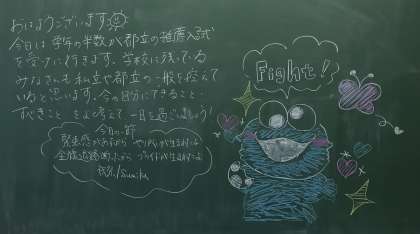 おはようございます
今日は学年の半数が都立の推薦入試
を受けに行きます。学校に残っている
みなさんも私立や都立の一般を控えて
いると思います。今の自分にできること・
すべきことを考えて一日を過ごしましょう!
今日の一節
緊張感があるから やりがいが生まれる
全勝
Fight!